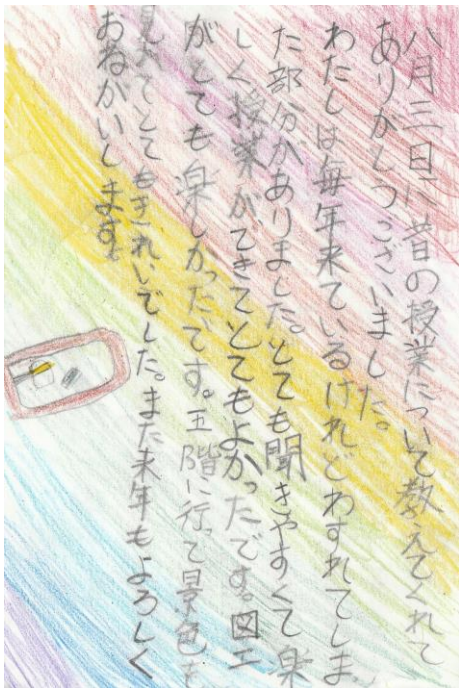 八月三日に昔の授業について教えてくれて
ありがとうございました。
わたしは毎年来ているけれどわすれてしまっ
た部分がありました。とても聞きやすくて楽
しく授業ができてとてもよかったです。図工
がとても楽しかったです。五階に行って景色を
見たてとてもきれいでした。また来年もよろしく
おねがいします。